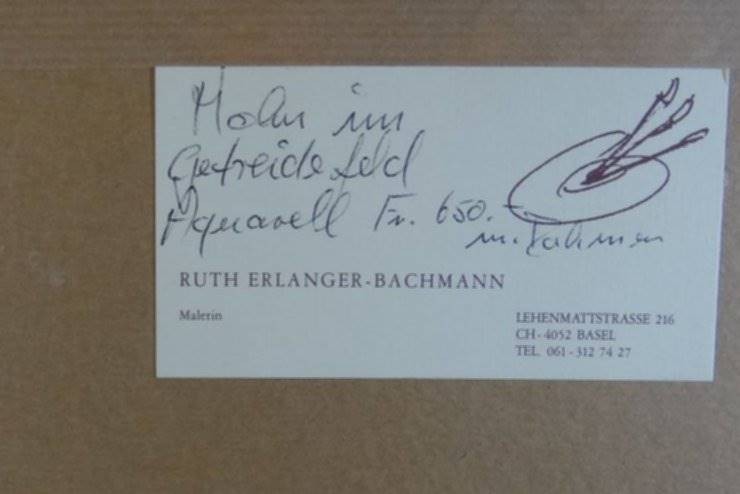 Mohn im
Getreidefeld
Aquarell Fr. 650.-
m. Rahmen
RUTH ERLANGER-BACHMANN
Malerin
LEHENMATTSTRASSE 216
CH-4052 BASEL
TEL. 061-312 74 27